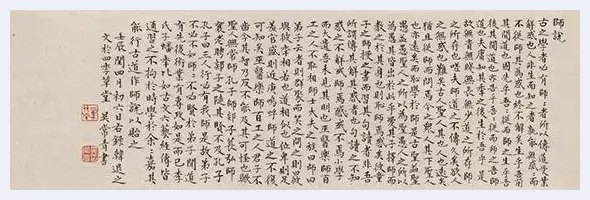 師說
古之學者必有師：者所以傳道受業
解惑也人非生而知之者孰能無惑而
不從師其為惑也終不解矣生乎吾前
其聞道也固先乎吾：從而師之生乎吾
後其聞道也亦先乎吾：從而師之吾師
道也夫庸知其年之後生於吾乎是
故無貴無賤無長無少道之所存師
之所存也嗟夫師道之不傳久矣欲人
之無惑也難矣古之聖人其出人也遠矣
猶且從師而問焉今之眾人其下聖人
也亦遠矣而恥學於師是故聖益聖
愚益愚聖人之所以為聖愚人之所以
為愚其皆出於此乎愛其子擇師而
教之於其身也則恥師焉惑矣彼童
子之師授之書而習其句讀者非吾
所謂傳其道解其惑者也句讀之不知
惑之不解或師焉或不焉小學
而大遺吾未見其明也巫醫樂師百
工之人不恥相師士大夫之族曰師曰
弟子云者則群聚而笑之問之則曰彼
與彼年相若也道相似也位卑則足
羞官盛則近諛嗚呼師道之不復
可知矣巫醫樂師百工之人君子不
齒今其智乃反不能及其可怪也歟
聖人無常師孔子師郯子萇弘師
襄老聃郯子之徒其賢不及孔子
孔子曰三人行必有我師是故弟子
不必不如師：不必賢於弟子聞道
有先後術業有專攻如是而已李
氏子蟠年十七好古文六藝經傳皆
通習之不拘於時學於余：嘉其
能行古道作師說以貽之
壬辰閏四月初六日右錄韓退之
文於四季草堂 吳常青書